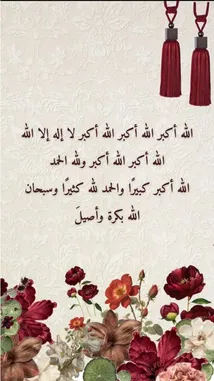 الله أكبر الله أكبر الله أكبر لا إله إلا الله
الله أكبر الله أكبر ولله الحمد
الله أكبر كبيرًا والحمد لله كثيرًا وسبحان
الله بكرة وأصيلَ